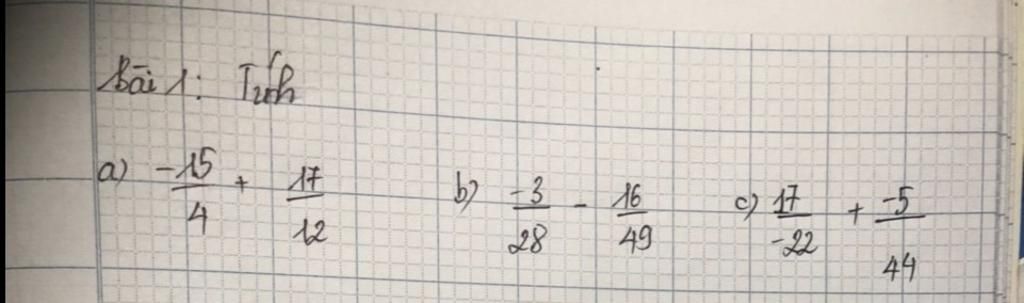 Bài 1: Tính
a) -15/4 + 17/12 b) -3/28 - 16/49 c) 17/-22 + -5/44